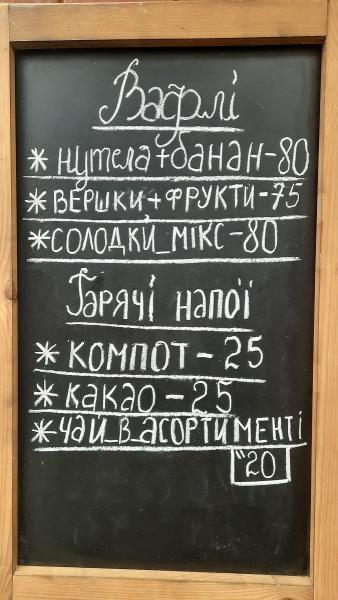 Вафлі
*нутела+банан-80
*ВЕРШКИ+ФРУКТИ-75
*СОЛОДКИ_МІКС-80
Гарячі напої
*КОМПОТ-25
*какао-25
*ЧАЙ_В_АСОРТИМЕНТІ
"20